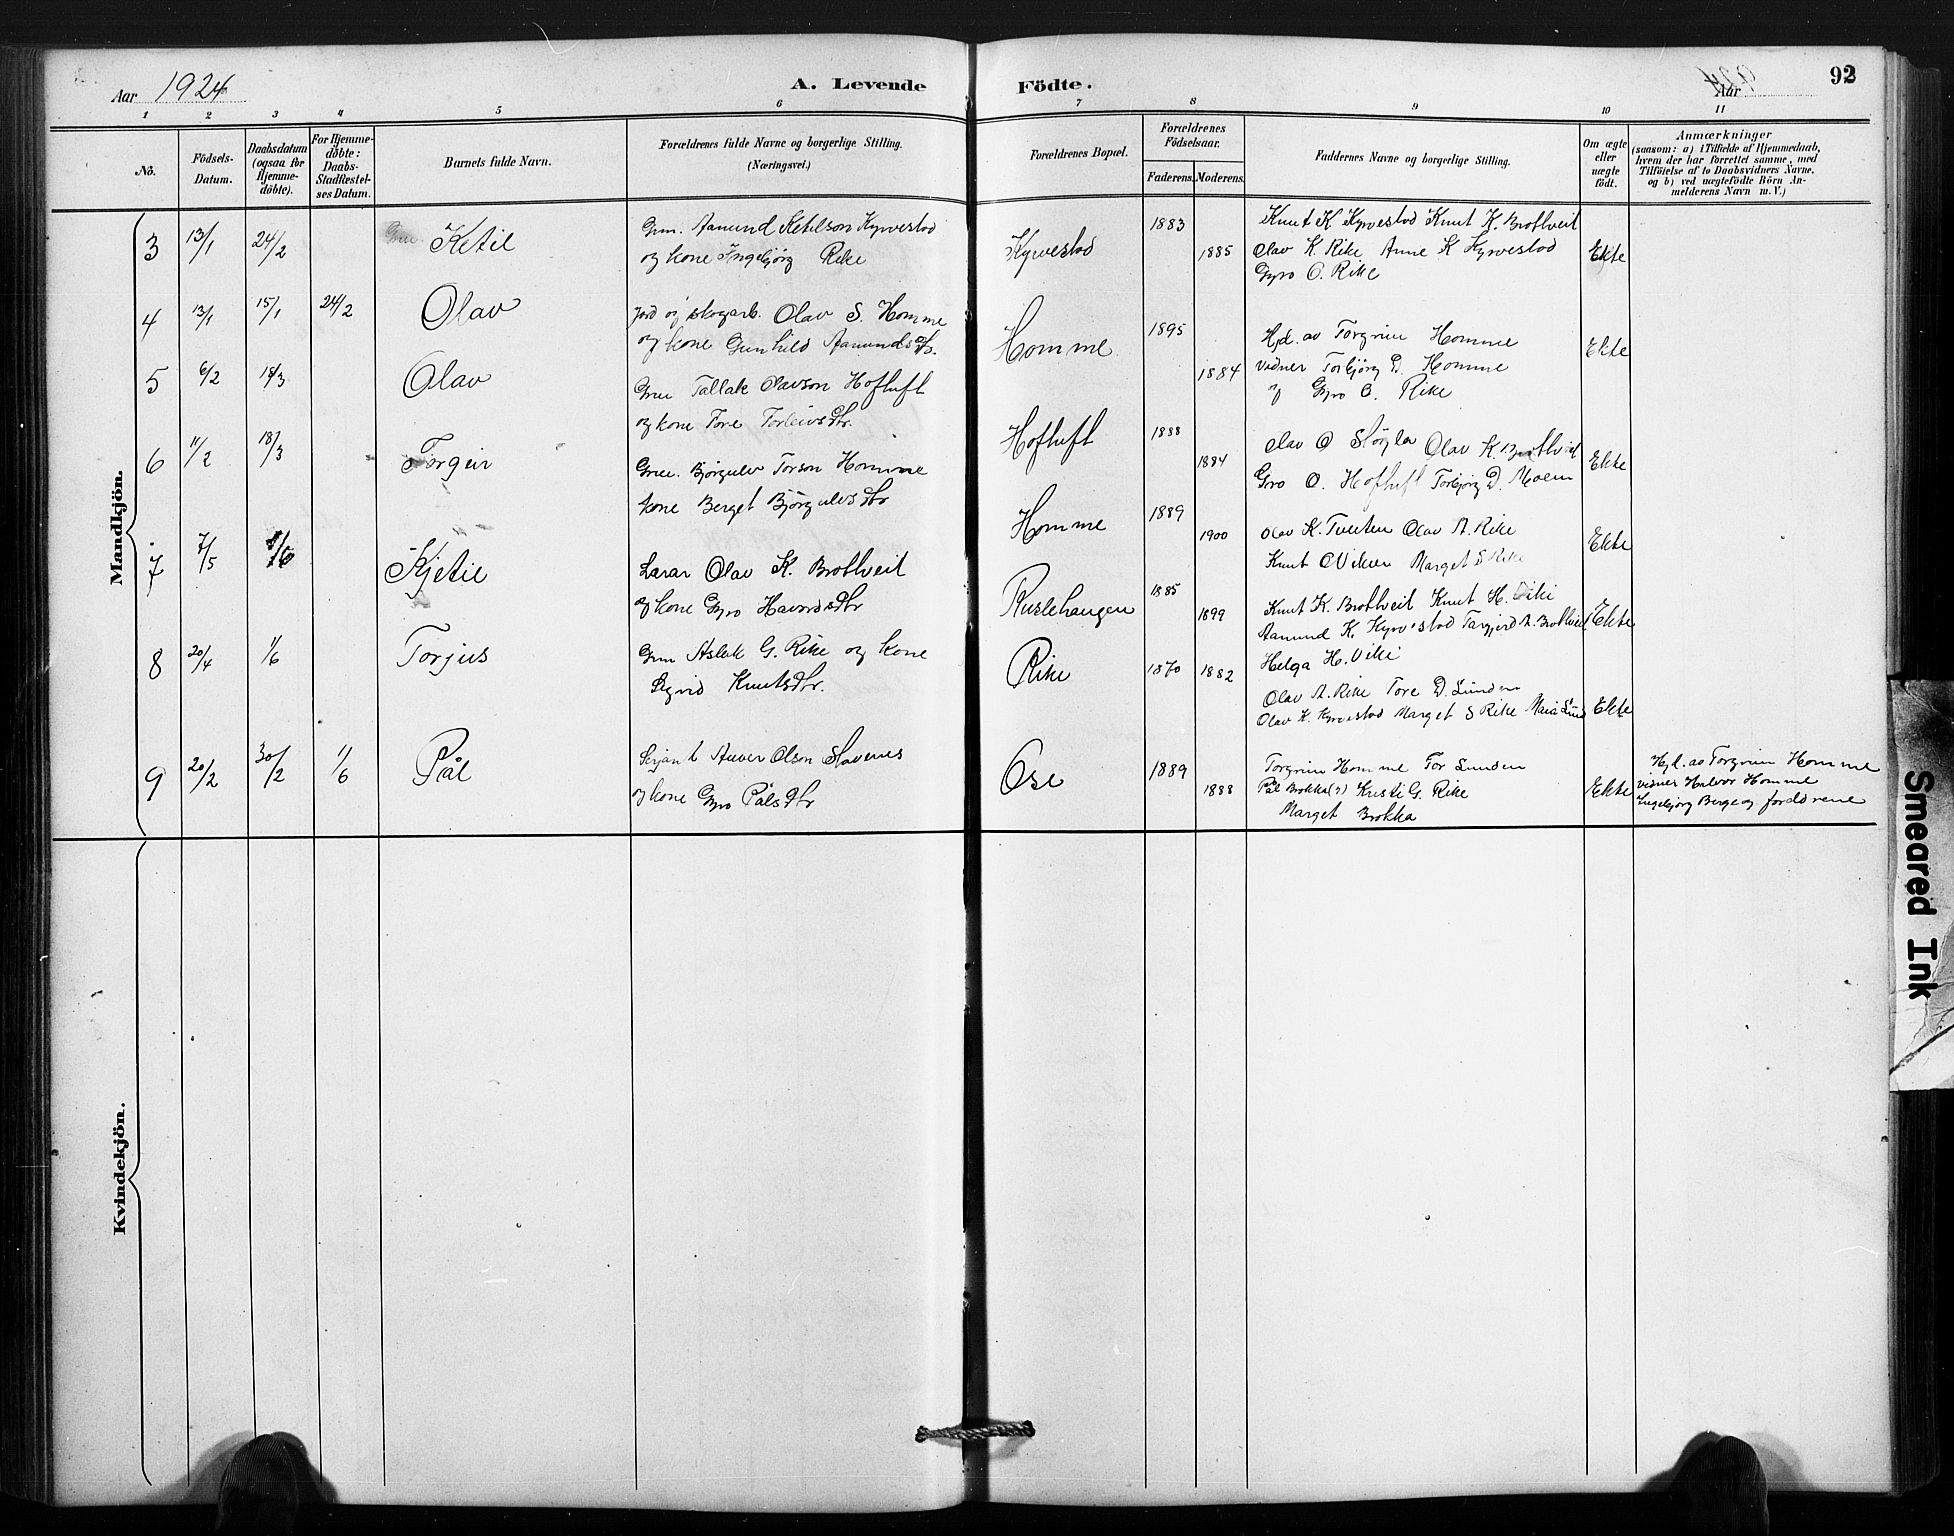 Aar 1924 A. Levende Fødte. Aar 92
1 2 3 4 5 6 7 8 9 10 11
No.
Födsels-Datum.
Daabsdatum (ogsaa for Hjemme-döbte).
For Hjemme-döbte: Daabs-Stadfestel-ses Datum.
Barnets fulde Navn.
Forældrenes fulde Navne og borgerlige Stilling.
(Næringsvei.)
Forældrenes Bopæl.
Forældrenes Födselsaar.
Faderens. Moderens.
Faddernes Navne og borgerlige Stilling.
Om ægte eller uægte födt.
Anmærkninger
(saasom: a) i Tilfælde af Hjemmedaab,
hvem der har forrettet samme, med
Tilföielse af to Daabsvidners Navne,
og b) ved uægtefödte Börn An-
melderens Navn m. V.)
Mandkjön.
3 13/1 24/2 Ketil
Grm. Aamund Ketilson Kyrvestad
og kone Ingebjörg Rike
Kyrvestad 1883 1885
Knut K Kyrvestad Knut K. Brottveit
Olav K. Rike Anne K Kyrvestad
Gyro O. Rike
Ekte
4 13/1 15/1 24/2 Olav
jord og skogarb. Olav S. Homme
og kone Gunhild Aamundsdtr.
Homme 1895 1884
Hjd. av Torgrim Homme
vidner Torbjörg D. Homme
og Gyro O. Rike
Ekte
5 6/2 18/3 Olav
Grm Tallak Olavson Hoftuft
og kone Tore Torleivsdtr.
Hoftuft 1888 1884
Olav O Olav K. Brottveit
Gro O. Hoftuft Torbjörg D. Moen
Ekte
6 11/2 18/3 Torgeir
Grm. Bjørgulv Torson Homme
kone Berget Bjørgulvsdtr
Homme 1889 1900
Olav K. Tveiten Olav A. Rike
Knut O Viken Marget S Rike
Ekte
7 7/5 1/6 Kjetil
Lærar Olav K. Brottveit
og kone Gyro Havardsdtr
Rustehaugen 1885 1899
Knut K. Brottveit Knut H. Viki
Aamund K. Kyrvestad Targjerd A. Brottveit
Helga H. Viki
Ekte
8 20/4 1/6 Torjus
Grm Aslak G. Rike og kone
Sigrid Knutsdtr.
Rike 1870 1882
Olav A. Rike Tore D. Lunden
Olav K. Kyrvestad Marget S Rike Maria Lund
Ekte
9 20/2 30/2 1/6 Pål
Serjant Anver Olson Stavenes
og kone Gyro Pålsdtr
Ose 1889 1888
Torgrim Homme Tor Lunden
Pål Brokka(?) Kristi G. Rike
Marget Brokka
Ekte
Hjd. av Torgrim Homme
vidner Halvor Homme
Ingebjörg Berge og foreldrene
Kvindekjön.
Smeared Ink